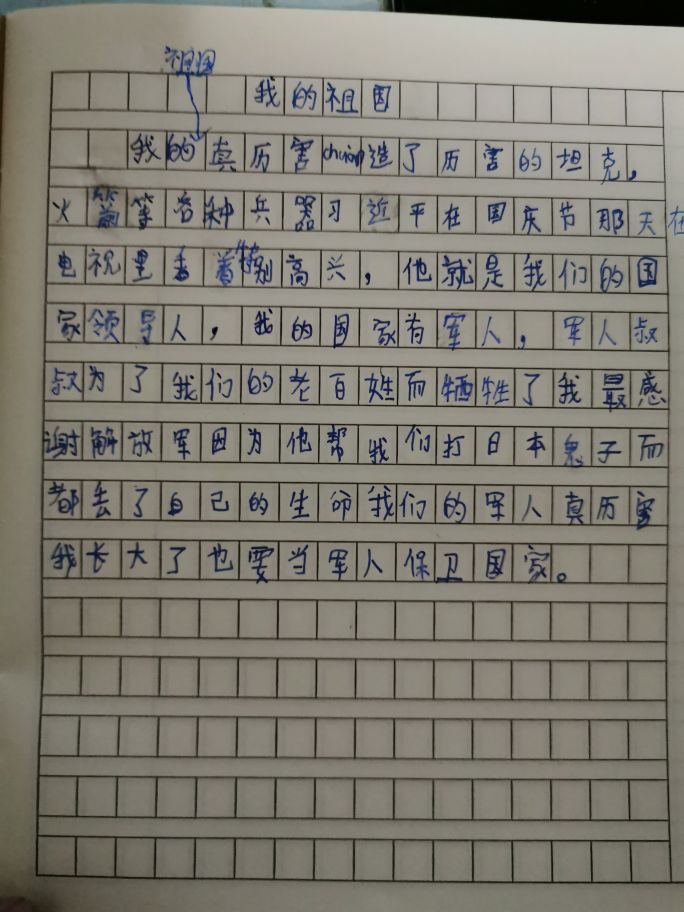 祖国
我的祖国
我的真历害chuàng造了历害的坦克,
火箭等各种兵器习近平在国庆节那天在
电视里看着特别高兴,他就是我们的国
家领导人,我的国家有军人,军人叔
叔为了我们的老百姓而牺牲了我最感
谢解放军因为他帮我们打日本鬼子而
都丢了自己的生命我们的军人真历害
我长大了也要当军人保卫国家。